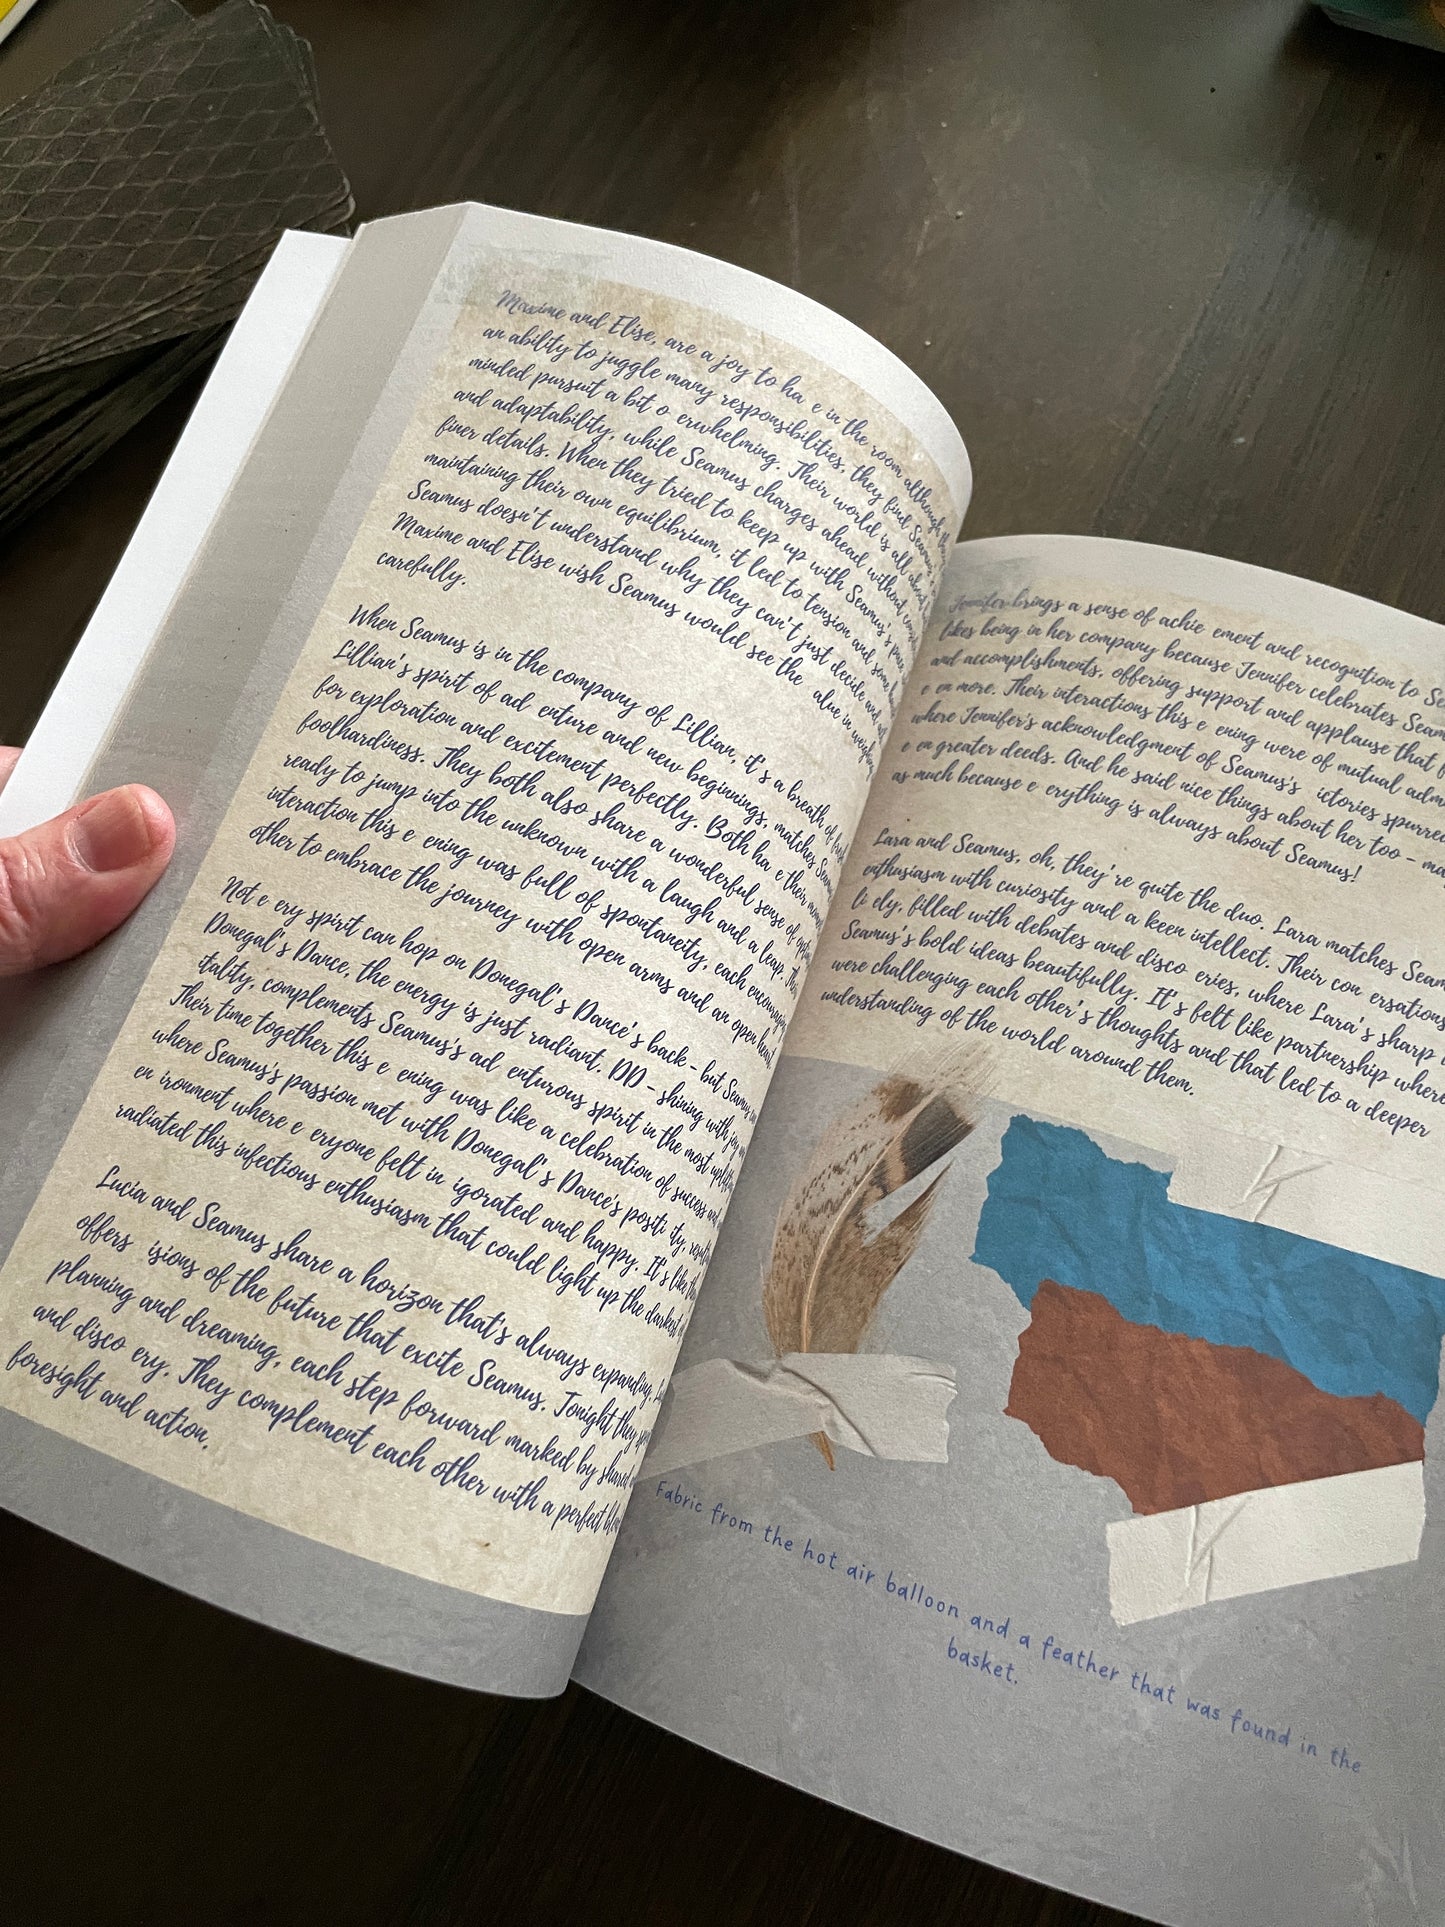 Maxime and Elise, are a joy to ha e in the room although they
an ability to juggle many responsibilities, they find Seamus's
minded pursuit a bit o erwhelming. Their world is all about
and adaptability, while Seamus charges ahead without
finer details. When they tried to keep up with Seamus's pace,
maintaining their own equilibrium, it led to tension and some
Seamus doesn't understand why they can't just decide and act.
Maxime and Elise wish Seamus would see the alue in weighing
carefully.
When Seamus is in the company of Lillian, it's a breath of fresh
Lillian's spirit of ad enture and new beginnings, matches Seamus
for exploration and excitement perfectly. Both ha e their
foolhardiness. They both also share a wonderful sense of
ready to jump into the unknown with a laugh and a leap. Their
interaction this e ening was full of spontaneity, each encouraging
other to embrace the journey with open arms and an open heart.
Not e ery spirit can hop on Donegal's Dance's back - but Seamus
Donegal's Dance, the energy is just radiant. DD - shining with joy
itality, complements Seamus's ad enturous spirit in the most
Their time together this e ening was like a celebration of success and
where Seamus's passion met with Donegal's Dance's positi ity,
en ironment where e eryone felt in igorated and happy. It's like
radiated this infectious enthusiasm that could light up the darkest
Lucia and Seamus share a horizon that's always expanding.
offers isions of the future that excite Seamus. Tonight they
planning and dreaming, each step forward marked by shared
and disco ery. They complement each other with a perfect
foresight and action.
Jennifer brings a sense of achie ement and recognition to
likes being in her company because Jennifer celebrates
and accomplishments, offering support and applause that
e en more. Their interactions this e ening were of mutual
where Jennifer's acknowledgment of Seamus's ictories spurred
e en greater deeds. And he said nice things about her too -
as much because e erything is always about Seamus!
Lara and Seamus, oh, they're quite the duo. Lara matches
enthusiasm with curiosity and a keen intellect. Their con ersations
li ely, filled with debates and disco eries, where Lara's sharp
Seamus's bold ideas beautifully. It's felt like partnership where
were challenging each other's thoughts and that led to a deeper
understanding of the world around them.
Fabric from the hot air balloon and a feather that was found in the
basket.